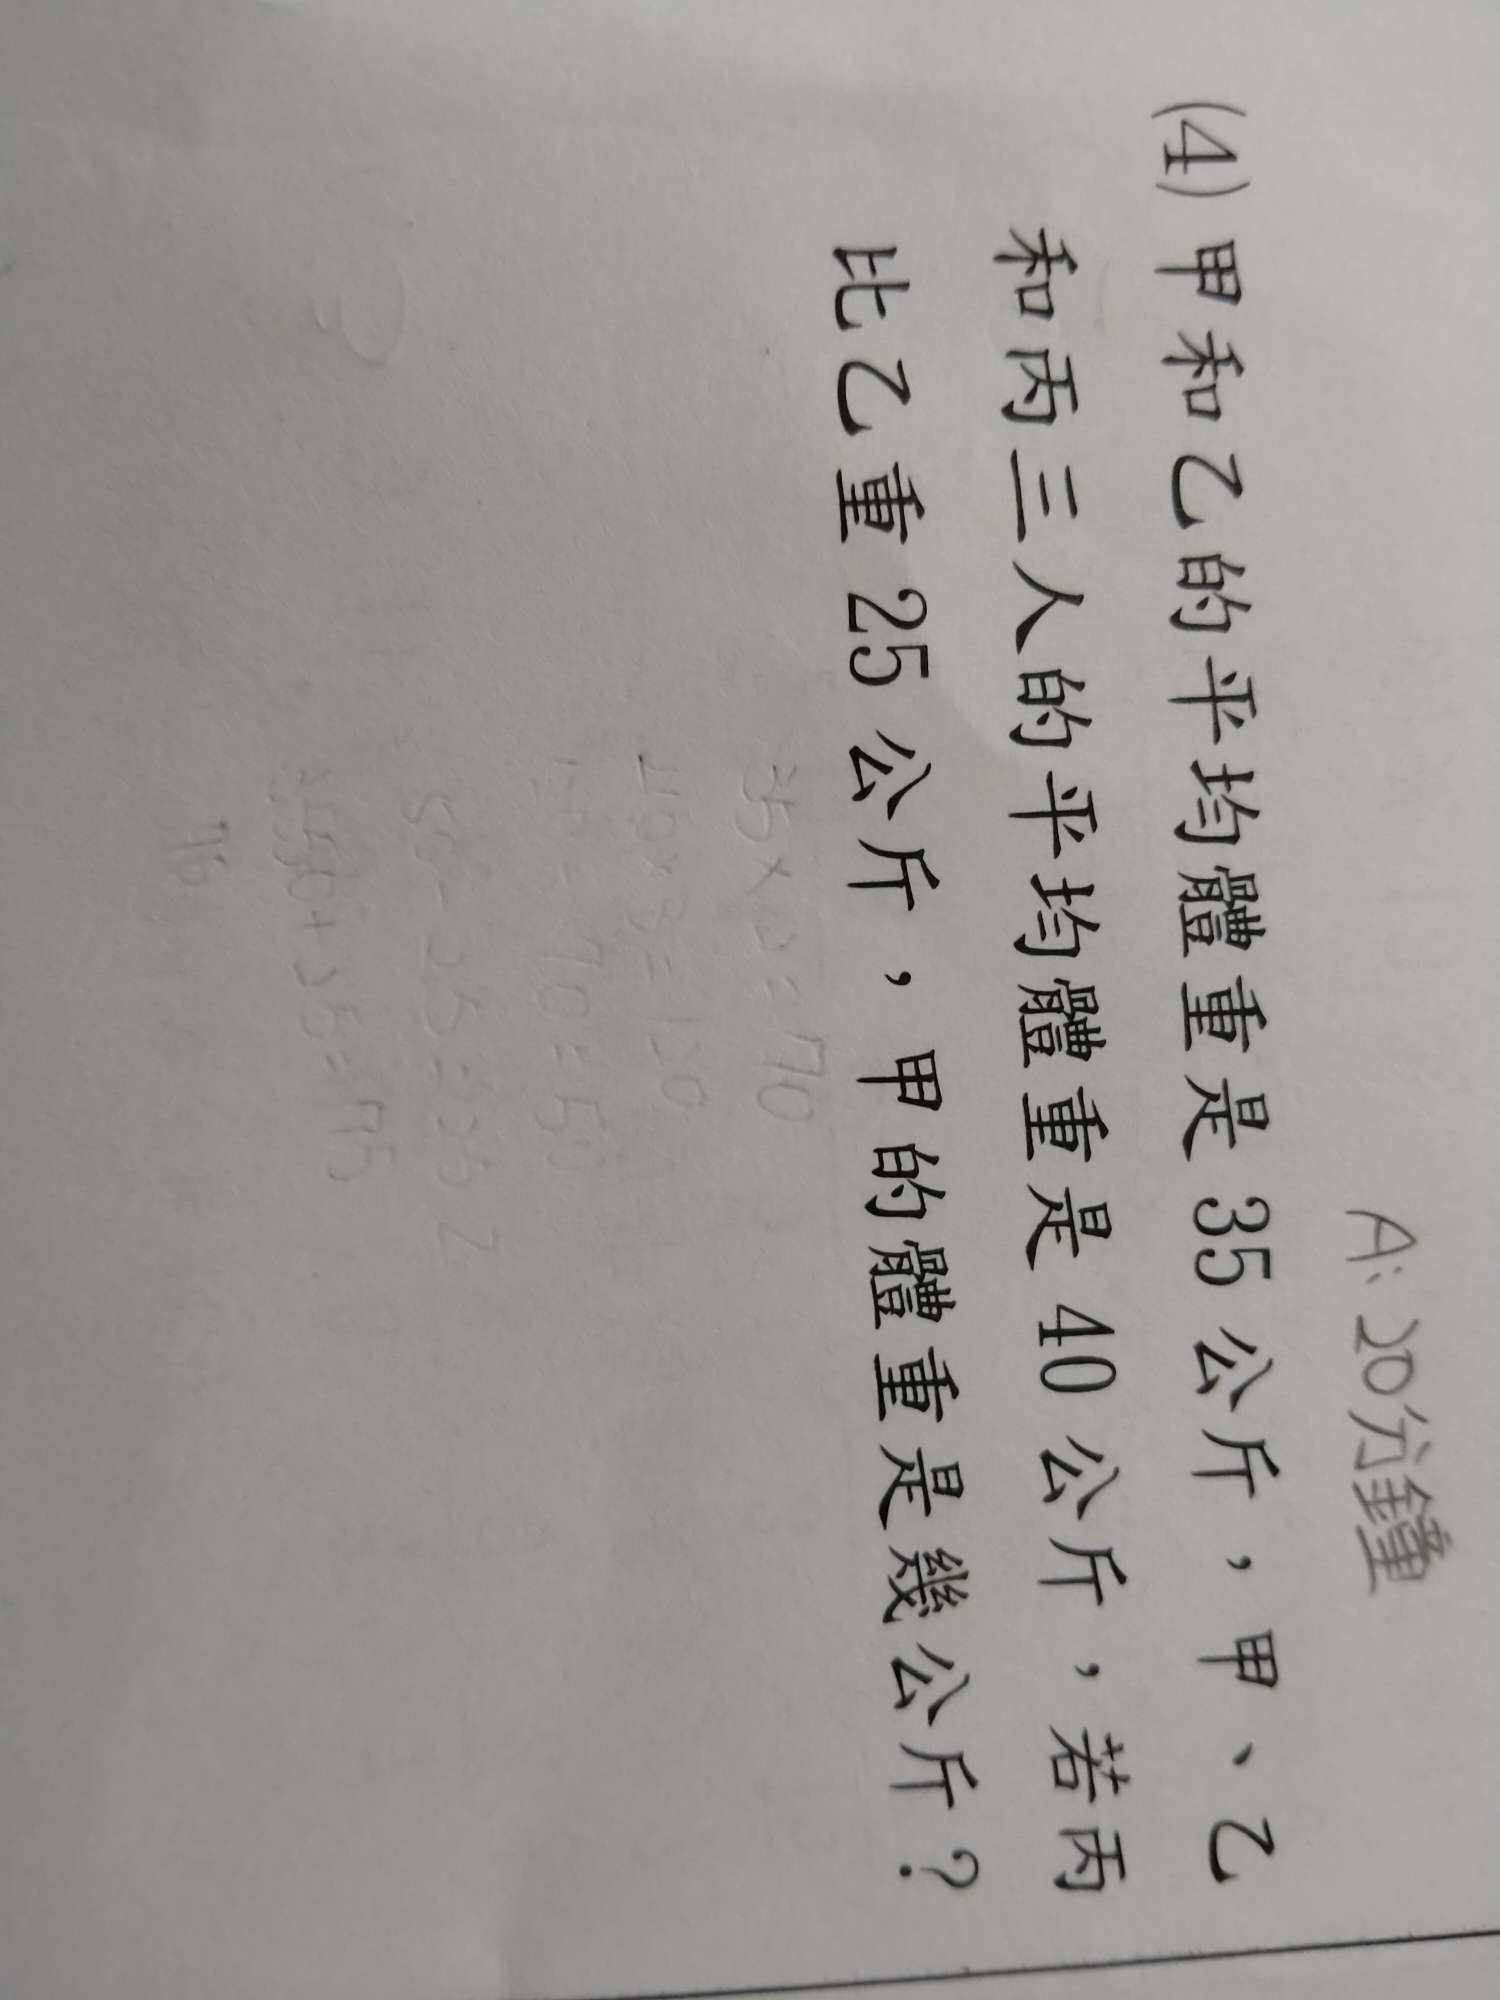 A：20分鐘
(4)甲和乙的平均體重是35公斤，甲、乙
和丙三人的平均體重是40公斤，若丙
比乙重25公斤，甲的體重是幾公斤？
35×2=70
40×3=120
70=50
50-25=25